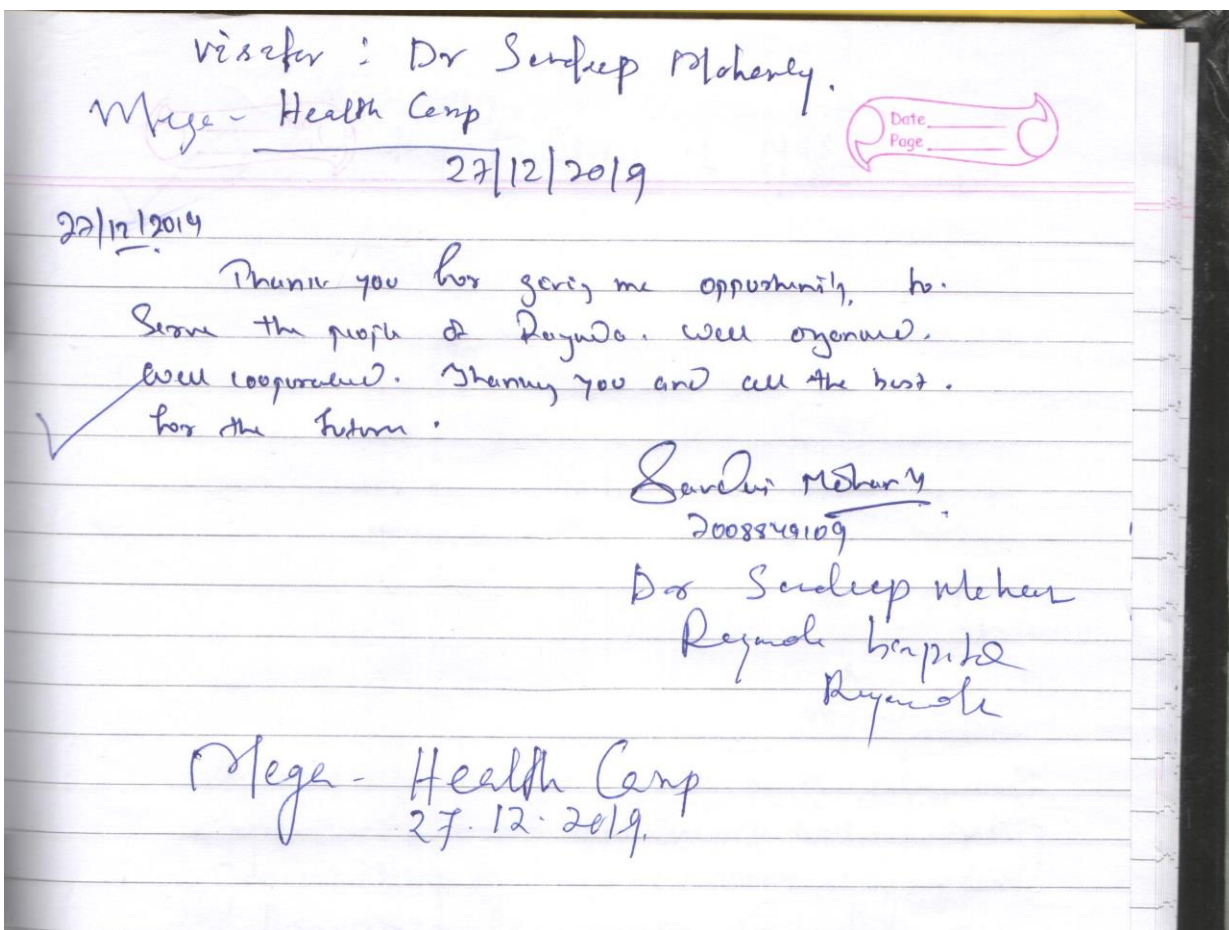 Visitor : Dr Sandeep Mohanty.
Mega - Health Camp
Date
Page
27/12/2019
27/12/2019
Thank you for giving me opportunity, to.
Serve the people of Rayagada. Well organised.
Well cooperated. Thanking you and all the best.
for the future.
Mohanty
Dr Sandeep Mohanty
Rayagada hospital
Rayagada
Mega - Health Camp
27.12.2019.